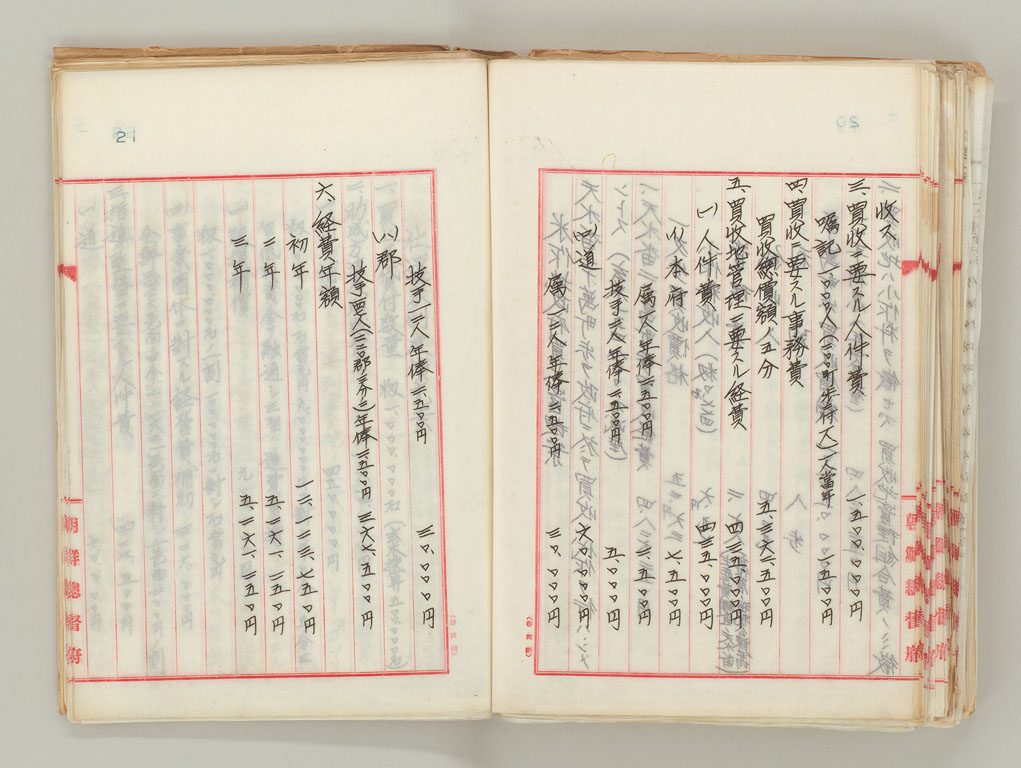 収ス
三、買収ニ要スル人件費 一、五〇〇、〇〇〇円
嘱託一、〇〇〇人 一人当年 一、五〇〇円
四、買収ニ要スル事務費
買収総価額ノ五分 五、三六三、五〇〇円
五、買収地管理ニ要スル経費 四三五、〇〇〇円
(一)人件費 四三五、〇〇〇円
(イ)本府 七、五〇〇円
属 一人年俸二、五〇〇円 二、五〇〇円
技手 二人年俸二、五〇〇円 五、〇〇〇円
(ロ)道 六〇、〇〇〇円
属 一二人年俸二、五〇〇円 三〇、〇〇〇円
21
技手一二人年俸二、五〇〇円 三〇、〇〇〇円
(ハ)郡
技手一四七人(二二〇郡三分二)年俸二、五〇〇円 三六七、五〇〇円
六、経費年額
初年 一三、一二三、七五〇円
二年 五、二六一、二五〇円
三年 五、二六一、二五〇円
朝鮮總督府